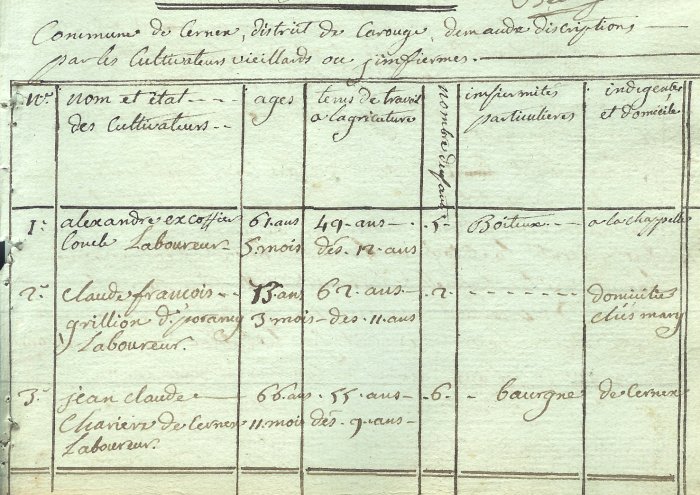 Commune de Cernex, district de Carouge, demande discriptions
par les Cultivateurs vieillards ou jinffiermes.
No. nom et état ages tems de travail nombre infiermites indigents
des Cultivateurs a lagriculture particulieres et domicile
1. alexandre excoffier 61. ans 49 - ans 5. Boiteux a la chapelle
Laboureur 5 mois dés. 12. ans
2. Claude francois 73. ans 62 - ans 2. domicilié
grillion 3 mois des. 11. ans
Laboureur.
3. jean claude 66 ans 55. ans 6. baurgne de Cernex
Chariere de Cernex 11. mois dés. 9. ans
Laboureur.